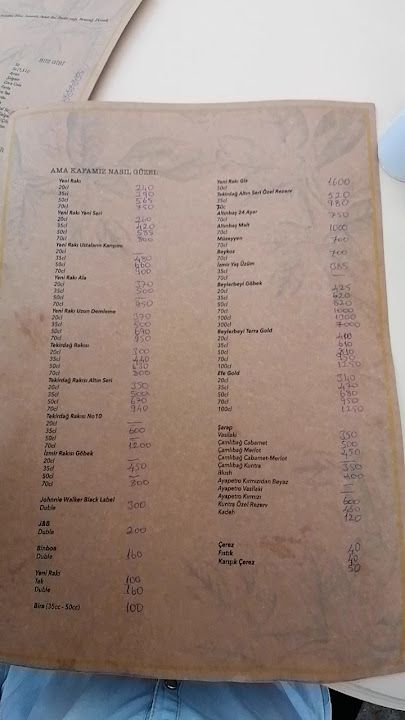 AMA KAFAMIZ NASIL GÜZEL
Yeni Rakı
20cl 240
35cl 390
50cl 565
70cl 750
Yeni Rakı Yeni Seri
20cl 260
35cl 420
50cl 585
70cl 800
Yeni Rakı Ustaların Karışımı
20cl —
35cl 480
50cl 660
70cl 900
Yeni Rakı Ala
20cl 370
35cl 500
50cl —
70cl 950
Yeni Rakı Uzun Demleme
20cl 370
35cl 500
50cl 690
70cl 950
Tekirdağ Rakısı
20cl 300
35cl 440
50cl 630
70cl 800
Tekirdağ Rakısı Altın Seri
20cl 350
35cl 500
50cl 670
70cl 940
Tekirdağ Rakısı No10
20cl —
35cl 600
50cl —
70cl 1200
İzmir Rakısı Göbek
20cl —
35cl 450
50cl —
70cl 800
Johnnie Walker Black Label
Duble 300
J&B
Duble 200
Binboa
Duble 160
Yeni Rakı
Tek 100
Duble 160
Bira (35cc - 50cc) 100
Yeni Rakı Giz 1600
50cl
Tekirdağ Altın Seri Özel Rezerv 520
35cl 980
70cl
Altınbaş 24 Ayar 750
70cl
Altınbaş Malt 1000
70cl
Müzeyyen 700
70cl
Beykoz 700
70cl
İzmir Yaş Üzüm 385
35cl —
Beylerbeyi Göbek
20cl 425
35cl 620
50cl 820
70cl 1000
100cl
300cl 7000
Beylerbeyi Terra Gold
20cl
35cl
50cl
70cl
100cl 1250
Efe Gold
20cl 340
35cl
50cl 680
70cl 950
100cl 1250
Şarap
Vasilaki 350
Çamlıbağ Cabarnet 500
Çamlıbağ Merlot 450
Çamlıbağ Cabarnet-Merlot
Çamlıbağ Kuntra 350
Blush 400
Ayapetro Kırmızıdan Beyaz
Ayapetro Vasilaki
Ayapetro Kırmızı 600
Kuntra Özel Rezerv 450
Kadeh 120
Çerez 40
Fıstık 40
Karışık Çerez 50